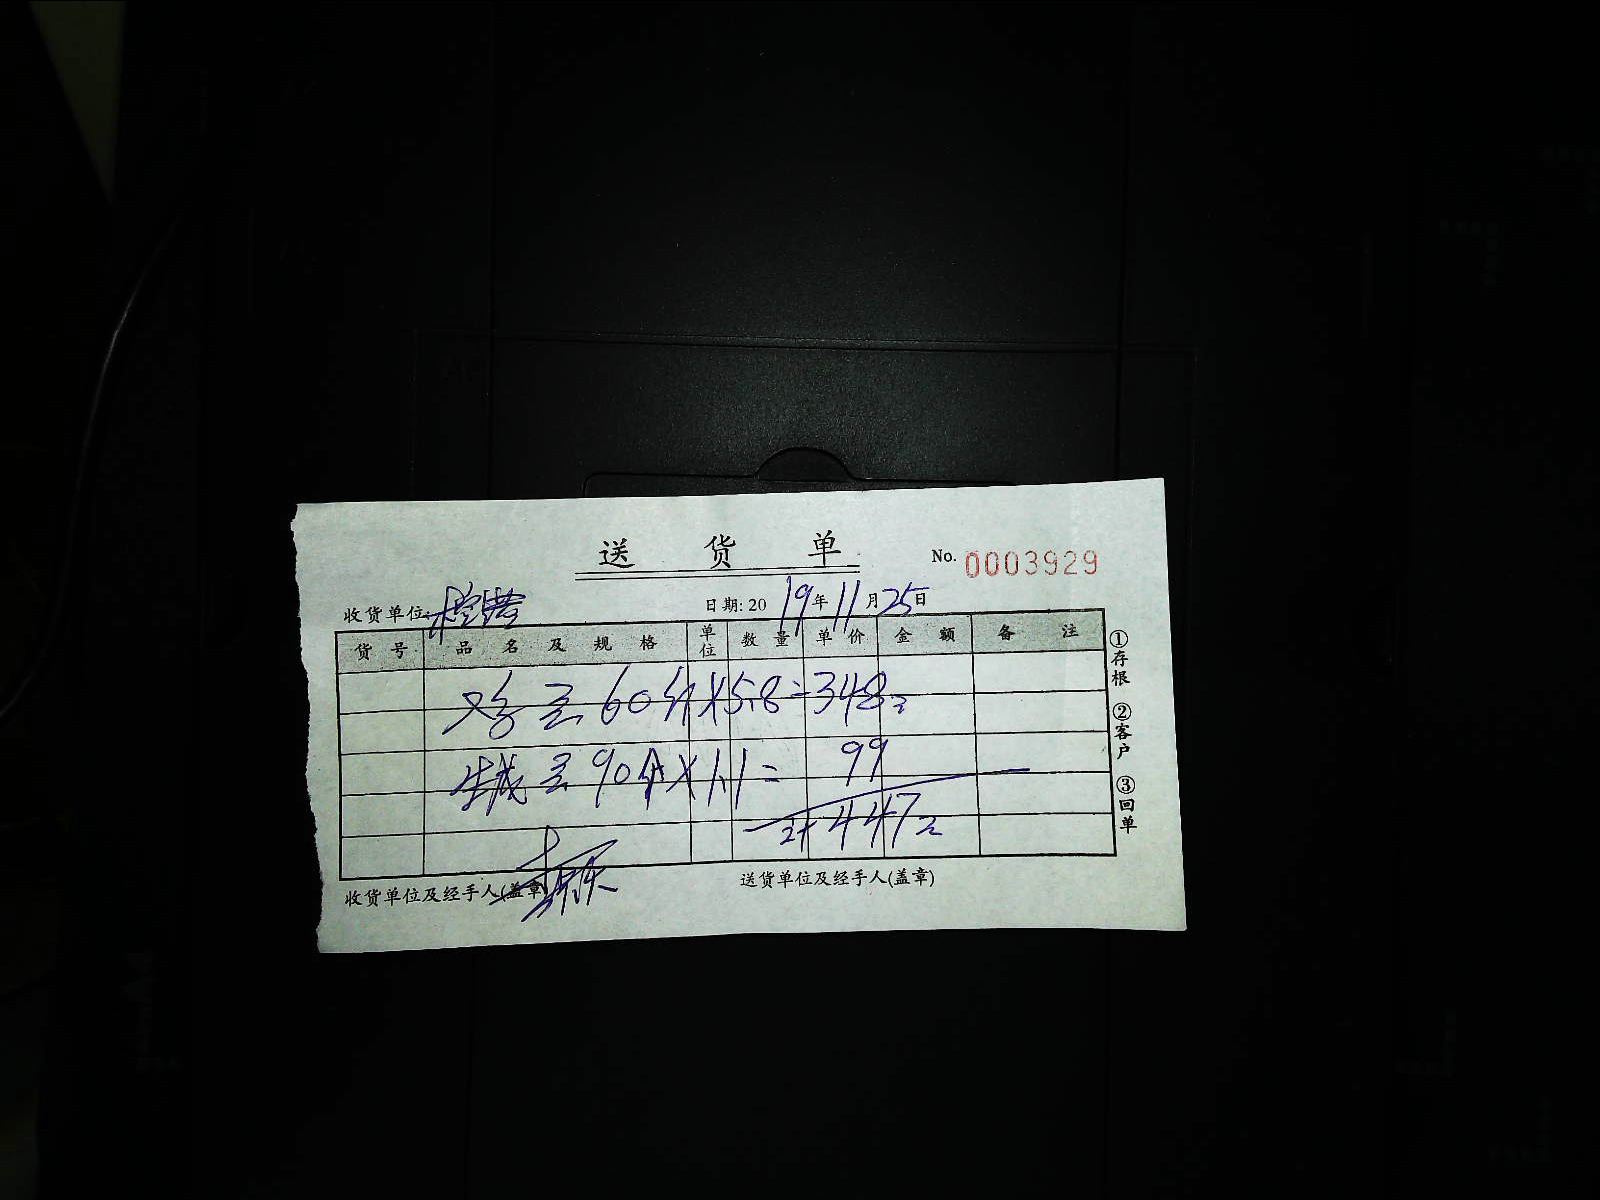 送 货 单
No. 0003929
收货单位:
日期: 2019年11月25日
货号 品名及规格 单位 数量 单价 金额 备注
鸡蛋 60斤×5.8=348元
生咸蛋 90个×1.1=99
计447元
收货单位及经手人(盖章)
送货单位及经手人(盖章)
①存根 ②客户 ③回单